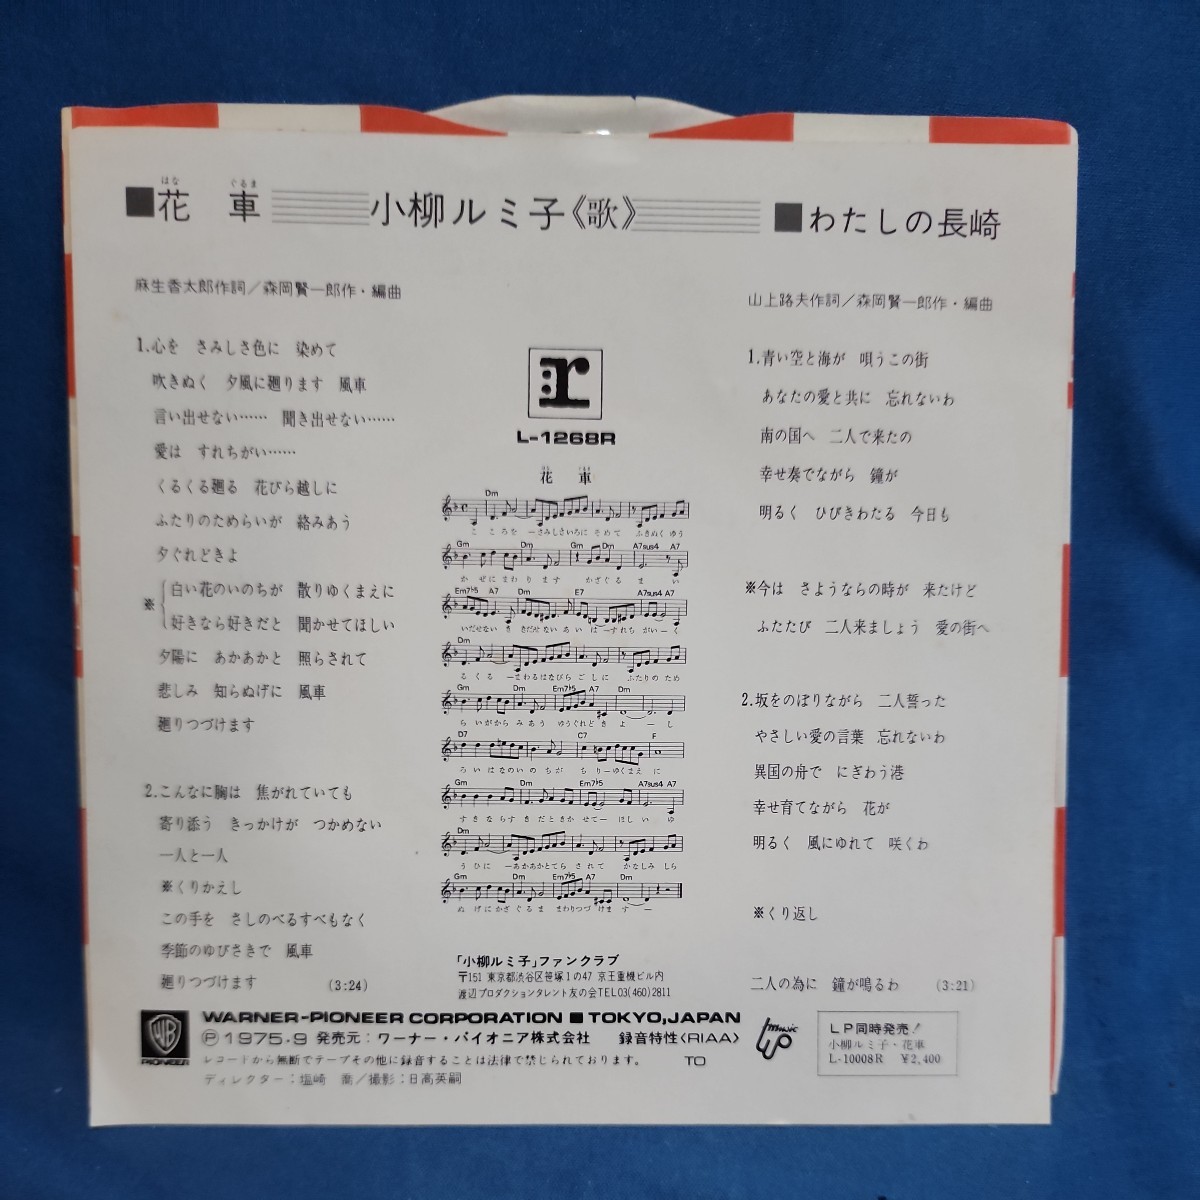 はな ぐるま
■花 車 小柳ルミ子《歌》 ■わたしの長崎
麻生香太郎作詞／森岡賢一郎作・編曲
1.心を さみしさ色に 染めて
吹きぬく 夕風に廻ります 風車
言い出せない…… 聞き出せない……
愛は すれちがい……
くるくる廻る 花びら越しに
ふたりのためらいが 絡みあう
夕ぐれどきよ
※ 白い花のいのちが 散りゆくまえに
好きなら好きだと 聞かせてほしい
夕陽に あかあかと 照らされて
悲しみ 知らぬげに 風車
廻りつづけます
2.こんなに胸は 焦がれていても
寄り添う きっかけが つかめない
一人と一人
※くりかえし
この手を さしのべるすべもなく
季節のゆびさきで 風車
廻りつづけます (3:24)
r
L-1268R
はな ぐるま
花 車
Dm
こ ころを ーさみしさいろに そめて ふきぬく ゆう
Gm Dm Gm Dm A7sus4 A7
か ぜにまわり ます かざぐる ま い
Em7♭5 A7 Dm E7 A7sus4 A7
いだせない き きだせない あ い は ーすれち がいー く
Dm
る くる ーまわるはなびら ご し に ふたりの ため
Gm Dm Em7♭5 A7 Dm
ら いがからみあう ゆうぐれどき よ ー し
D7 C7 F
ろ い は なの い の ち が ち り ーゆくまえ に
Gm Dm Em7♭5 A7sus4 A7
す き な ら す き だ と き か せて ー ほ し い ゆ
Dm
う ひ に ーあかあかとてら さ れ て かなしみ しら
Gm Dm Em7♭5 A7 Dm
ぬ げ に か ざ ぐ る ま まわりつづ けま す ー
「小柳ルミ子」ファンクラブ
〒151 東京都渋谷区笹塚1の47 京王重機ビル内
渡辺プロダクションタレント友の会TEL03(460)2811
山上路夫作詞／森岡賢一郎作・編曲
1.青い空と海が 唄うこの街
あなたの愛と共に 忘れないわ
南の国へ 二人で来たの
幸せ奏でながら 鐘が
明るく ひびきわたる 今日も
※今は さようならの時が 来たけど
ふたたび 二人来ましょう 愛の街へ
2.坂をのぼりながら 二人誓った
やさしい愛の言葉 忘れないわ
異国の舟で にぎわう港
幸せ育てながら 花が
明るく 風にゆれて 咲くわ
※くり返し
二人の為に 鐘が鳴るわ (3:21)
WB PIONEER
WARNER-PIONEER CORPORATION ■ TOKYO,JAPAN
Ⓟ1975・9 発売元：ワーナー・パイオニア株式会社 録音特性〈RIAA〉
レコードから無断でテープその他に録音することは法律で禁じられております。 TO
ディレクター：塩崎 喬／撮影：日高英嗣
music up
LP同時発売！
小柳ルミ子・花車
L-10008R ¥2,400